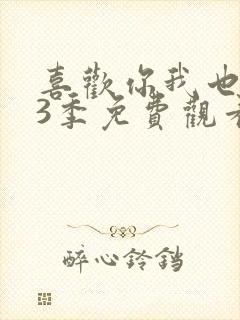 喜歡你我也
3季免費觀看
醉心鈴鐺